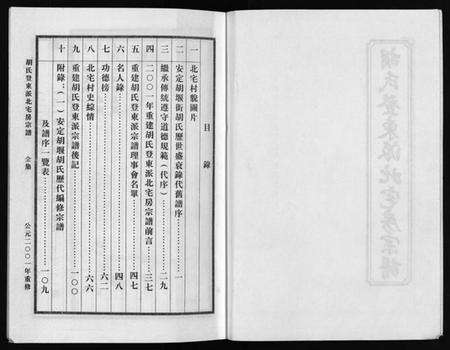 目錄
一 北宅村貌圖片
二 安定胡堰街胡氏歷世盛衰錄代舊譜序…………一
三 繼承傳統遵守道德規範(代序)…………二九
四 二〇〇一年重建胡氏登東派北宅房宗譜前言…………三七
五 重建胡氏登東派宗譜理事會名單…………四七
六 名人錄…………四八
七 功德榜…………六二
八 北宅村史綜情…………六六
九 重建胡氏登東派宗譜後記…………一〇〇
十 附錄:(一)安定胡堰胡氏歷代編修宗譜
及譜序一覽表…………一〇九
胡氏登東派北宅房宗譜 全集 公元二〇〇一年重修
胡氏登東派北宅房宗譜